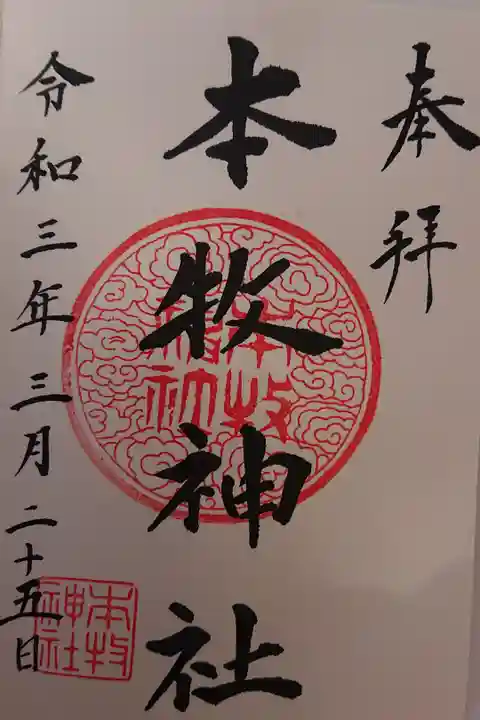 奉拝
本牧神社
令和三年三月二十五日
本牧
神社
本牧
神社